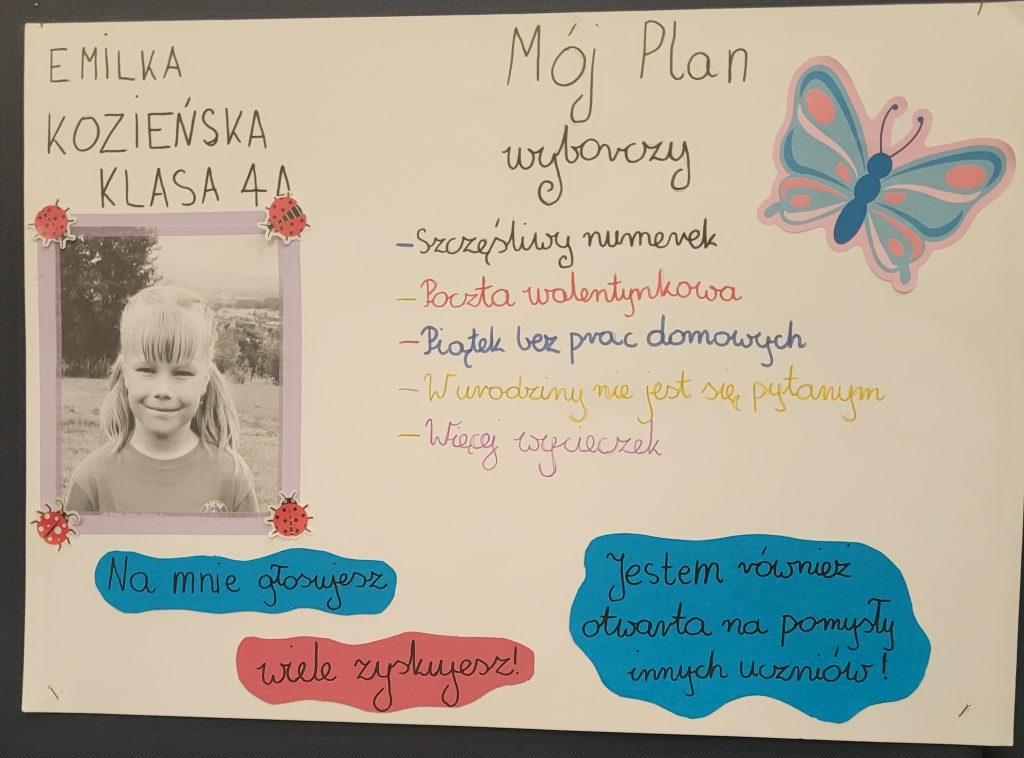 EMILKA
KOZIEŃSKA
KLASA 4A
Mój Plan
wyborczy
- Szczęśliwy numerek
- Poczta walentynkowa
- Piątek bez prac domowych
- W urodziny nie jest się pytanym
- Więcej wycieczek
Na mnie głosujesz
wiele zyskujesz!
Jestem również
otwarta na pomysły
innych uczniów!